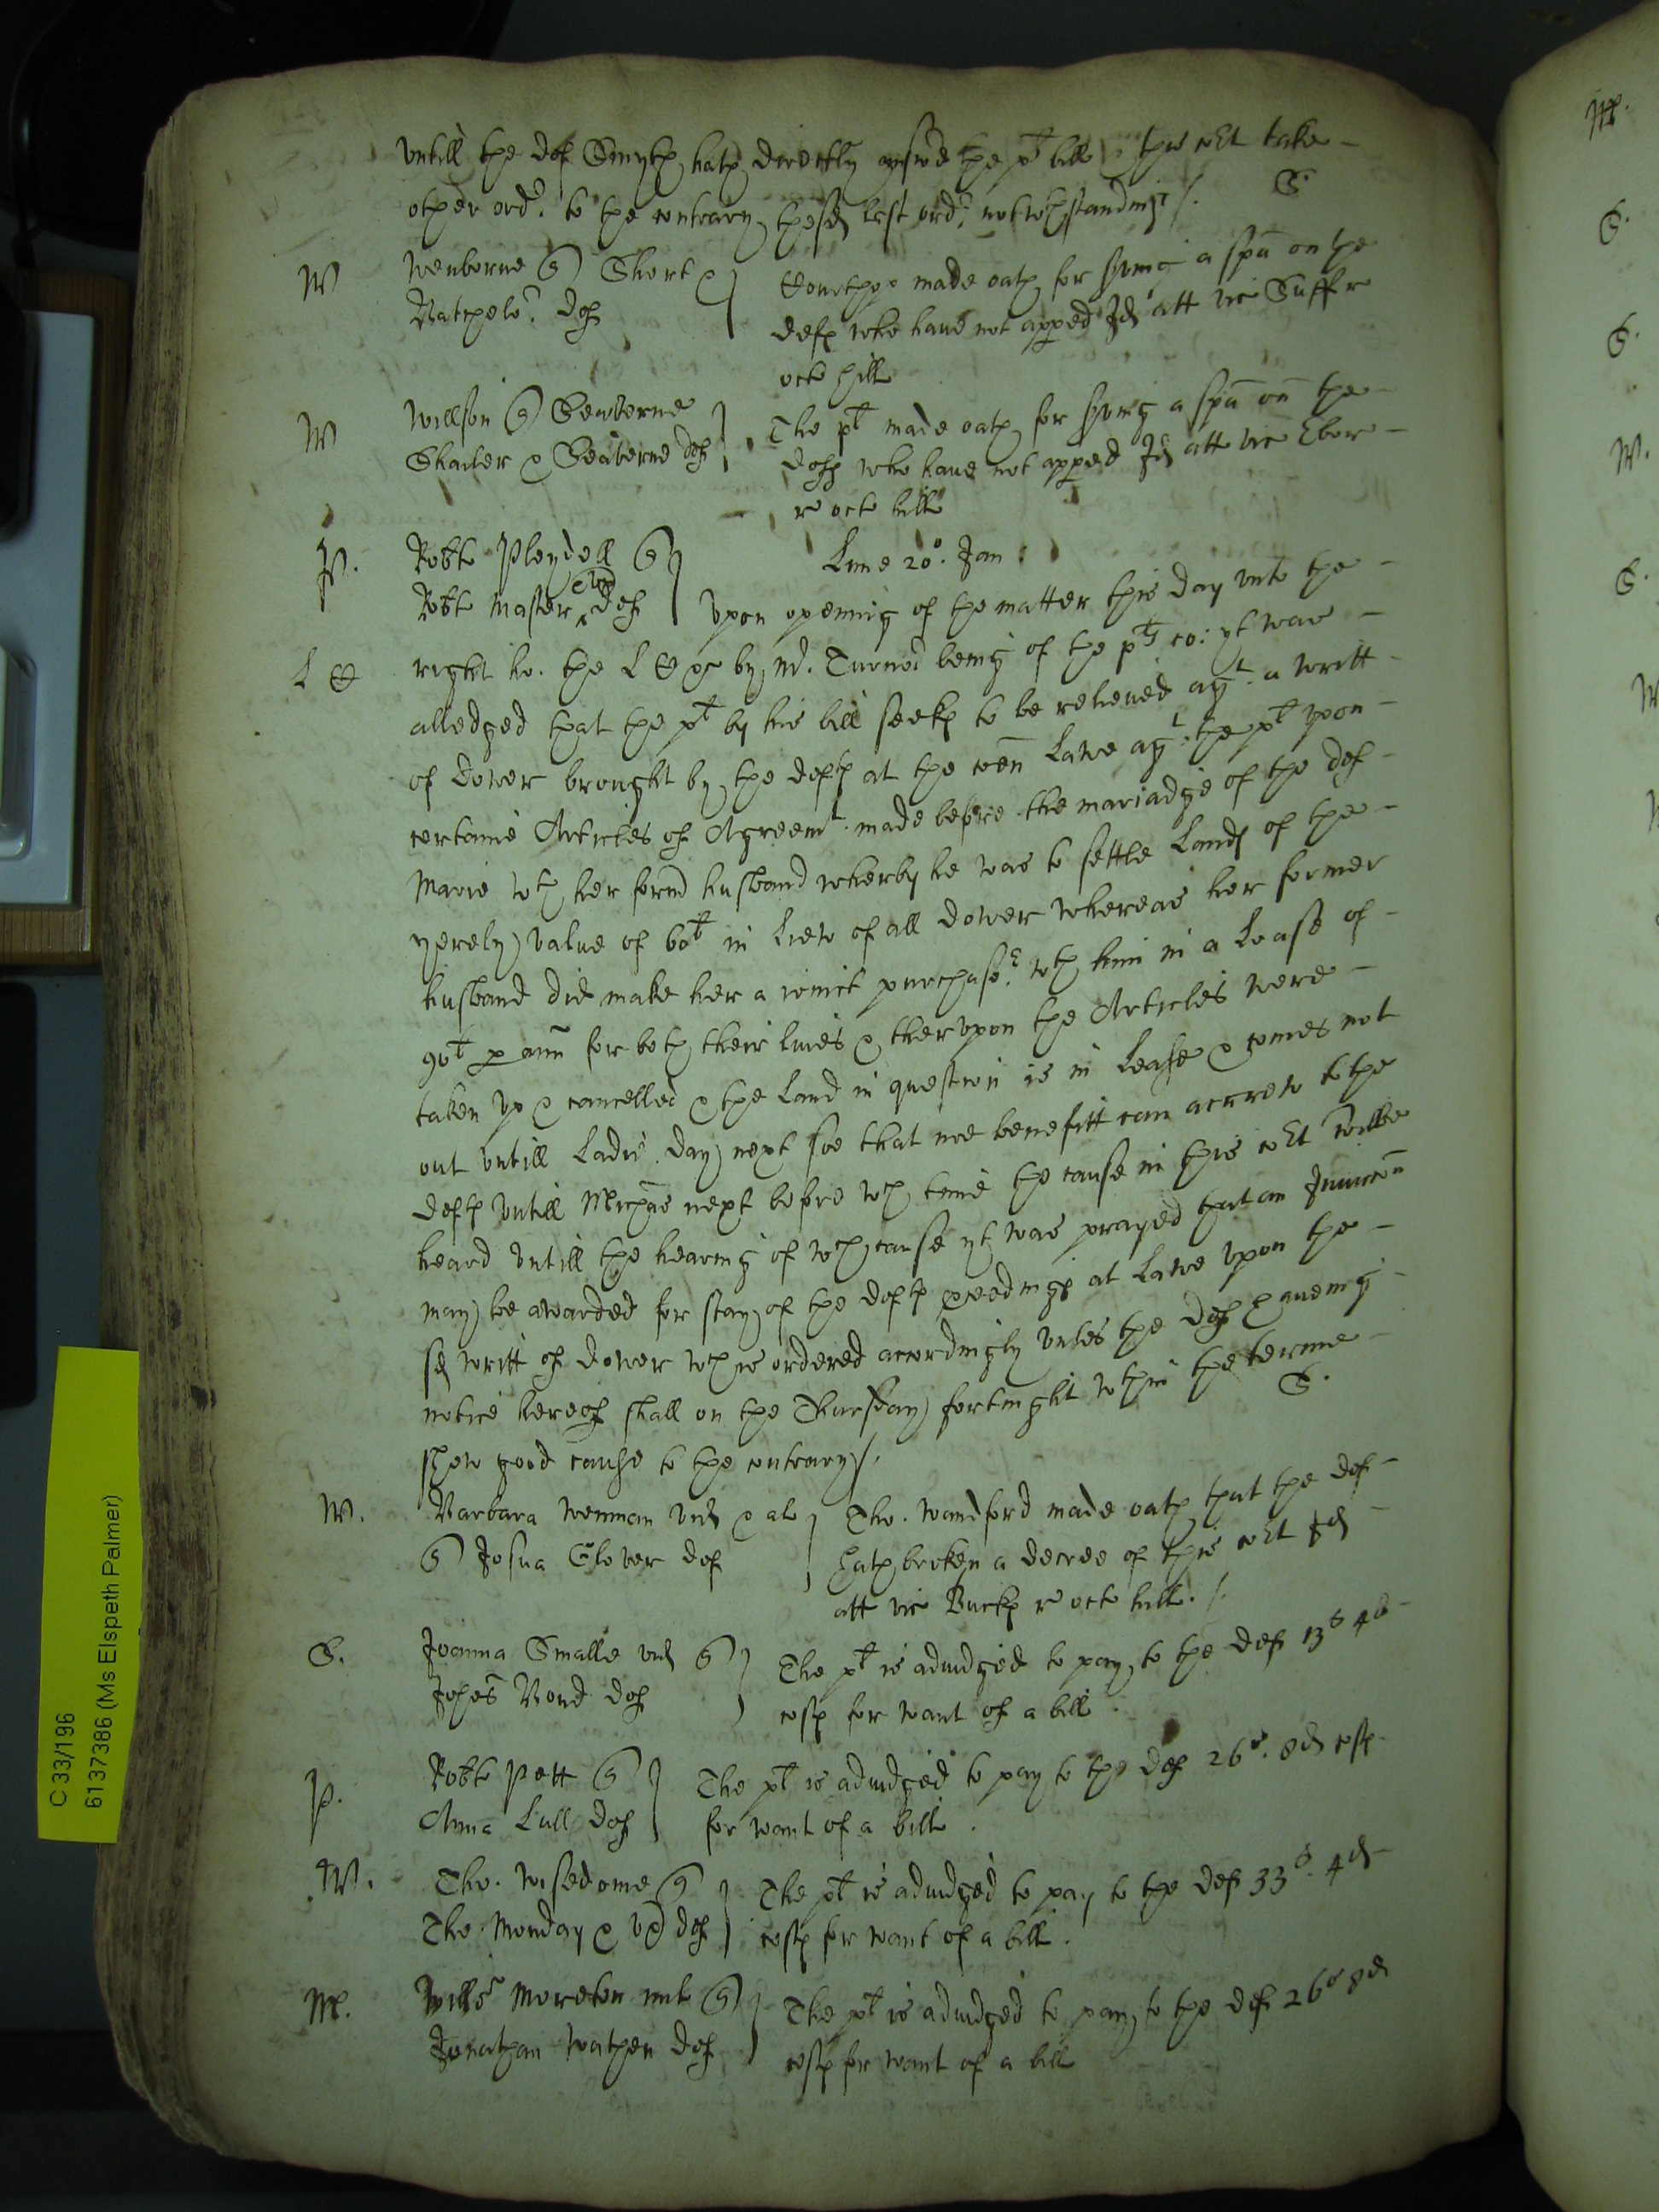 untill the def Smyth hath directly answd the plt bill this Cort take
other ordr. to the contrary thesd last ordr. notwthstanding /. S.
W Wenborne Short &
Batchelor. def
made oath for srving a spa on the
defts who have not apped Id att vic Suffr
octo hill
W Willson Seaborne
Shaxler & Seaborne def
The plt made oath for srving a spa on the
deff who have not apped Id att vic Ebor
r octo hill
P. Robte Pleydell
Robte Master & ux def
Lune 20º. Jan :
Upon openinge of the matter this day unto the
L C right ho. the L C &c by Mr. Turnor being of the plts co: yt was
alledged that the plt by his bill seeks to be releived agt. a writt
of dower brought by the defts at the coen Lawe agt. the plt upon
certaine Articles of Agreemt. made before the mariadge of the def
Marie wth her formr husband wherby he was to settle Lands of the
yerely value of 60l in Liew of all dower whereas her former
husband did make her a joinct purchasr. wth him in a Lease of
90l p ann for both their lives & therupon the Articles were
taken up & cancelled & the Land in question is in Lease & comes not
out untill Ladie day next soe that noe benefitt can accrew to the
defts untill Michas next before wch time the cause in this Cort wilbe
heard untill the hearing of wch cause yt was prayed that an Iniunccon
may be awarded for stay of the defts pceedings at Lawe upon the
sd writt of dower wch is ordered accordingly unles the def haveing
notice hereof shall on the Thursday fortnight wthin the terme
shew good cause to the contrary /. S.
W. Barbara Wenman vid & al
Josua Glover def
Tho. Wandford made oath that the def
hath broken a decree of this Cort Id
att vic Bucks r octo hill. /.
S. Joanna Smalle vid
Johes Bond def
The plt is adiudged to pay to the def 13s 4d
costs for want of a bill
P. Robte Pett
Anna Lull def
The plt is adiudged to pay to the def 26s. 8d costs
for want of a bill .
W. Tho. Wisedome
Tho. Monday & ux def
The plt is adiudged to pay to the def 33s. 4d
costs for want of a bill.
M. Willo Moreton mil
Jonathan Wathen def
The plt is adiudged to pay to the def 26s 8d
costs for want of a bill
C 33/196
6137386 (Ms Elspeth Palmer)
M.
S.
S.
W.
S.